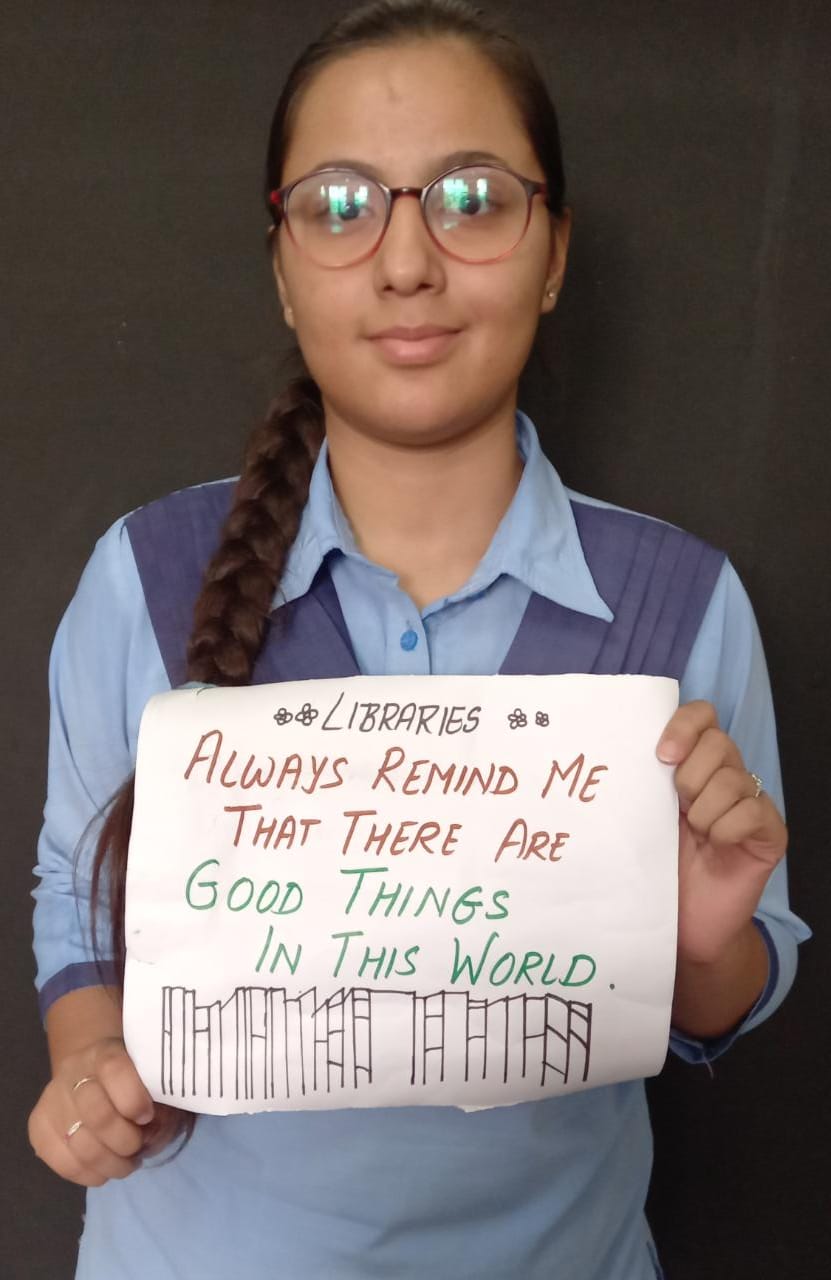 LIBRARIES
ALWAYS REMIND ME
THAT THERE ARE
GOOD THINGS
IN THIS WORLD.